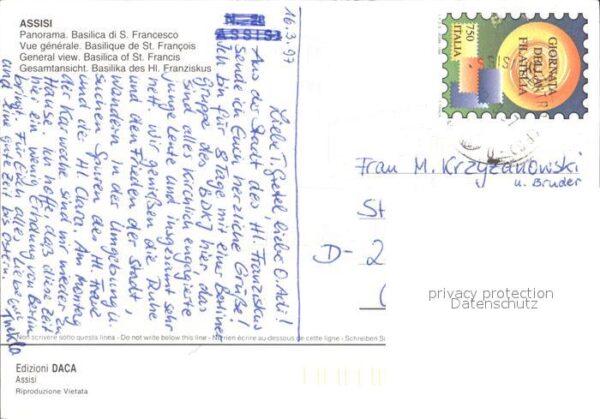 ASSISI
Panorama. Basilica di S. Francesco
Vue générale. Basilique de St. François
General view. Basilica of St. Francis
Gesamtansicht. Basilika des Hl. Franziskus
ASSISI
16.3.97
Liebe T. Gretel, lieber O. Adi!
Aus der Stadt des Hl. Franziskus
sende ich Euch herzliche Grüße!
Ich bin für 8 Tage mit einer Berliner
Gruppe des BDKJ hier, das
sind alles kirchlich engagierte
junge Leute und insgesamt sehr
nett. Wir genießen die Ruhe
und den Frieden der Stadt,
wandern in der Umgebung u.
suchen Spuren des Hl. Franz
und die Hl. Clara. Am Montag
der Karwoche sind wir wieder zu
Hause. Ich hoffe, daß diese Zeit
hier ein wenig Erholung von Berlin
bringt. Für Euch alles Liebe
und eine gute Zeit bis Ostern.
GIORNATA
DELLA
FILATELIA
750
ITALIA
ASSISI
Frau M. Krzyzanowski
u. Bruder
St
D- 2
privacy protection
Datenschutz
Non scrivere sotto questa linea - Do not write below this line - Ne rien écrire au-dessous de cette ligne - Schreiben S
Edizioni DACA
Assisi
Riproduzione Vietata